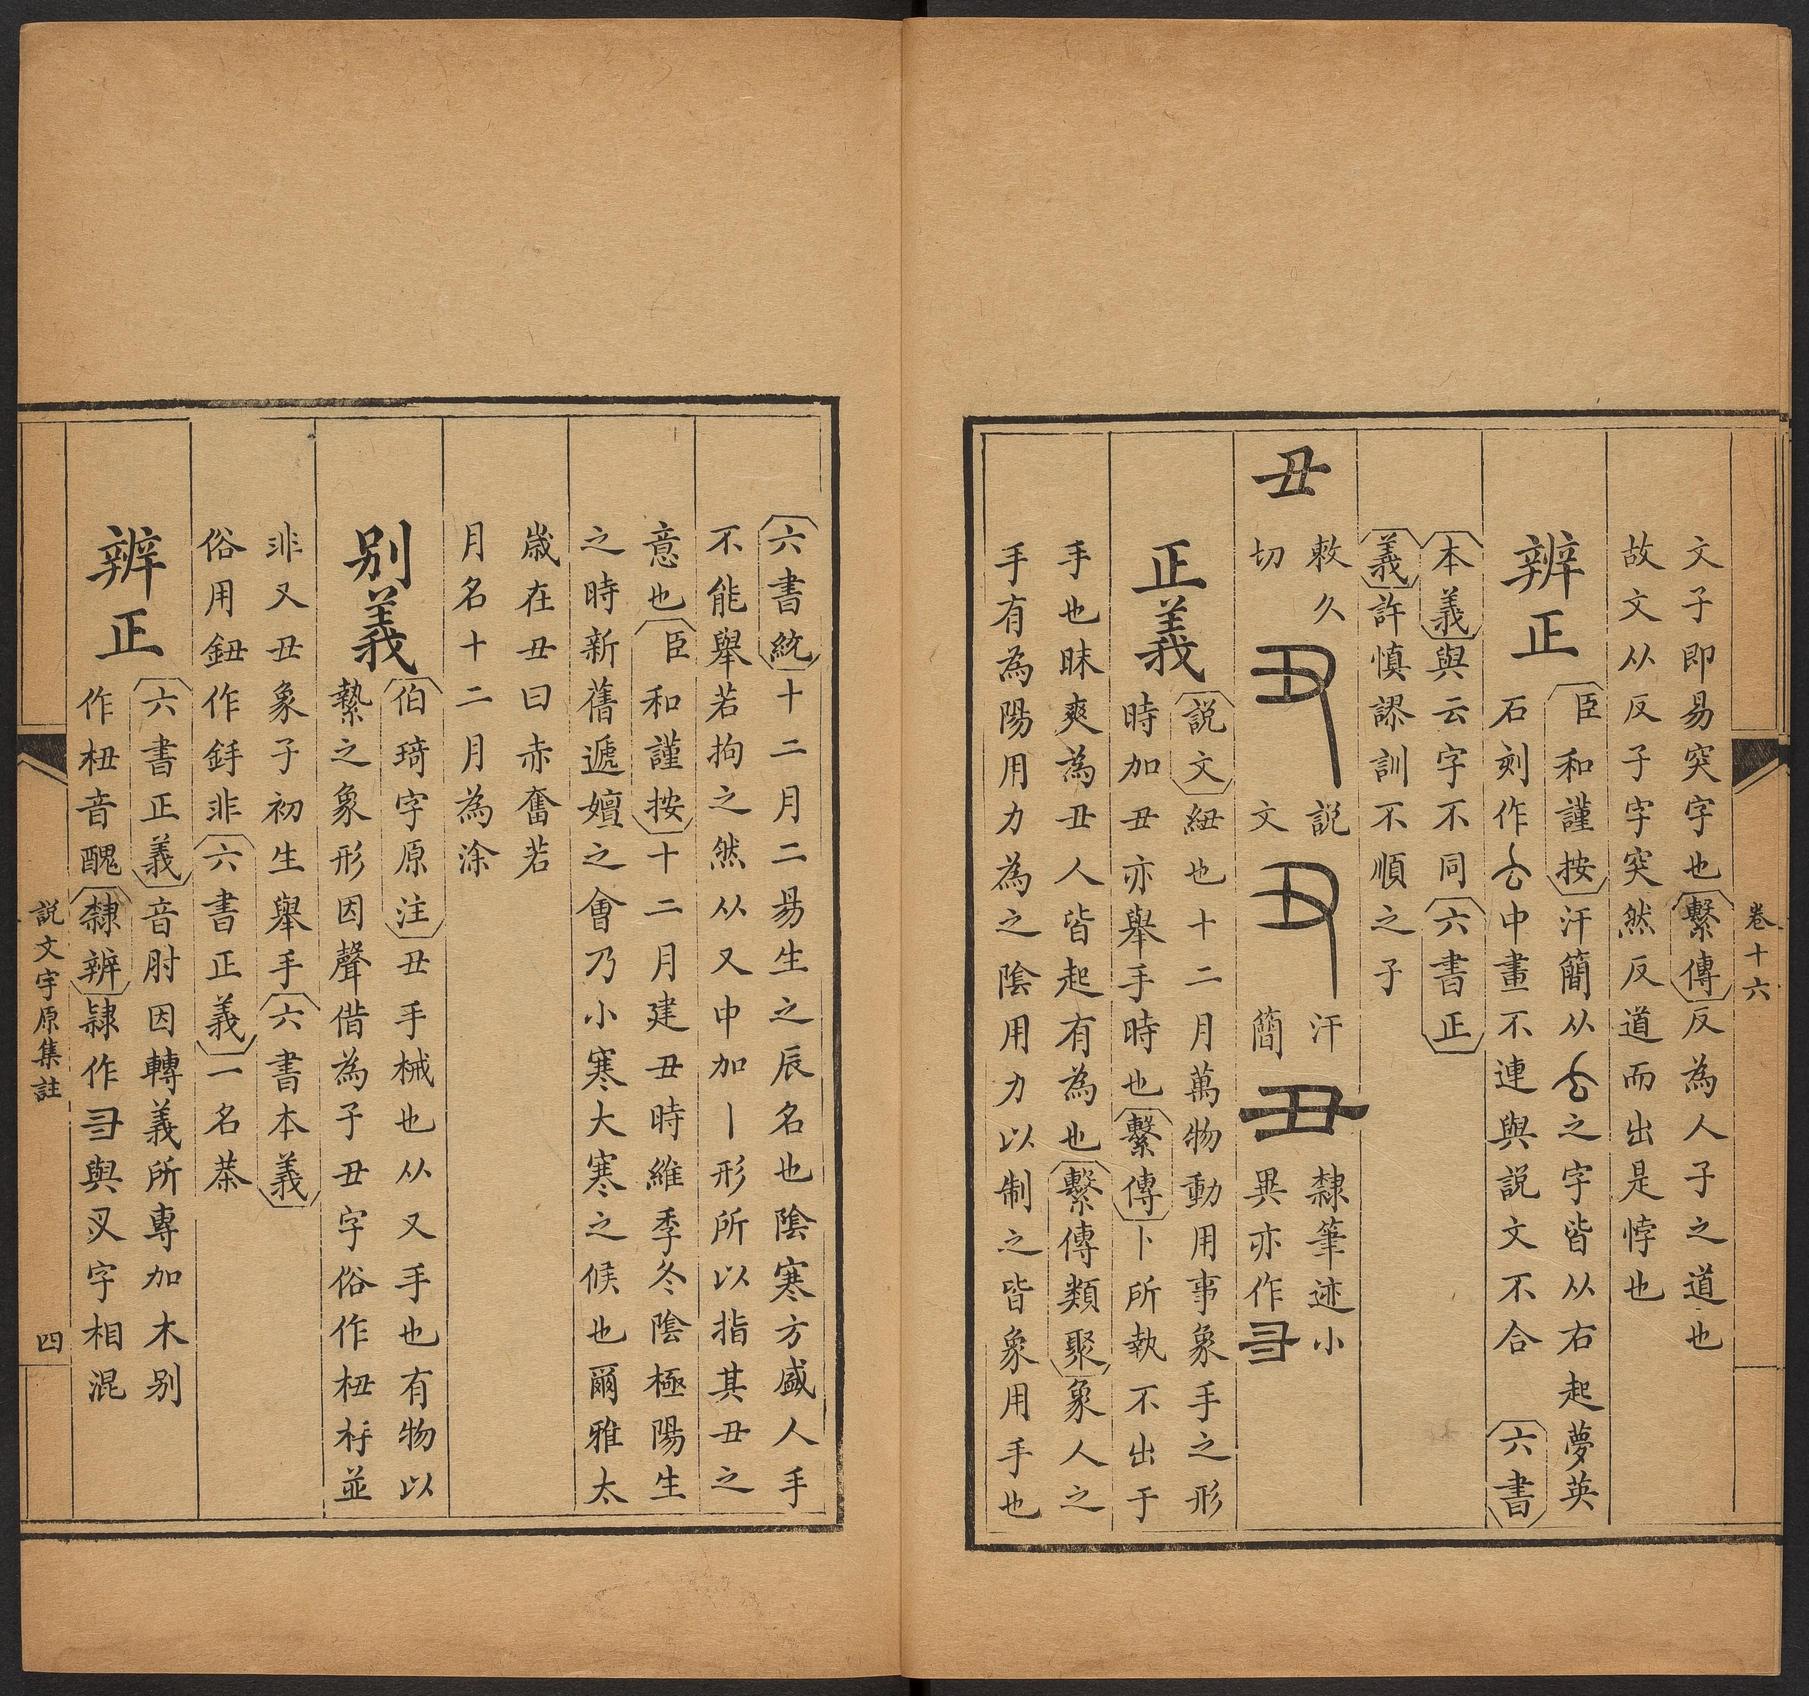 卷十六
文子即易突字也繫傳反為人子之道也
故文从反子字突然反道而出是悖也
辨正
臣和謹按汗簡从之字皆从右起夢英
石刻作中畫不連與説文不合六書
本義與云字不同六書正
義許慎謬訓不順之子
丑
敕久
切
説
文
汗
簡
隸筆迹小
異亦作彐
正義
説文紐也十二月萬物動用事象手之形
時加丑亦舉手時也繫傳卜所執不出于
手也昧爽為丑人皆起有為也繫傳類聚象人之
手有為陽用力為之陰用力以制之皆象用手也
六書統十二月二昜生之辰名也陰寒方盛人手
不能舉若拘之然从又中加丨形所以指其丑之
意也臣和謹按十二月建丑時維季冬陰極陽生
之時新舊遞嬗之會乃小寒大寒之候也爾雅太
歲在丑曰赤奮若
月名十二月為涂
別義
伯琦字原注丑手械也从又手也有物以
縶之象形因聲借為子丑字俗作杻杽並
非又丑象子初生舉手六書本義
俗用鈕作釪非六書正義一名荼
辨正
六書正義音肘因轉義所專加木別
作杻音醜隸辨隷作彐與叉字相混
説文字原集註
四